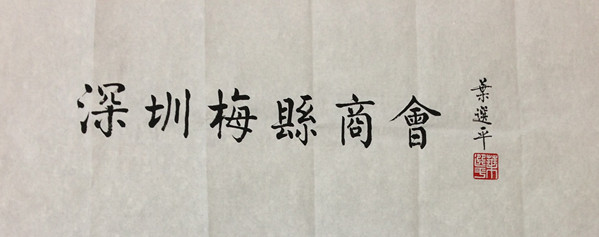 深圳梅縣商會
葉選平